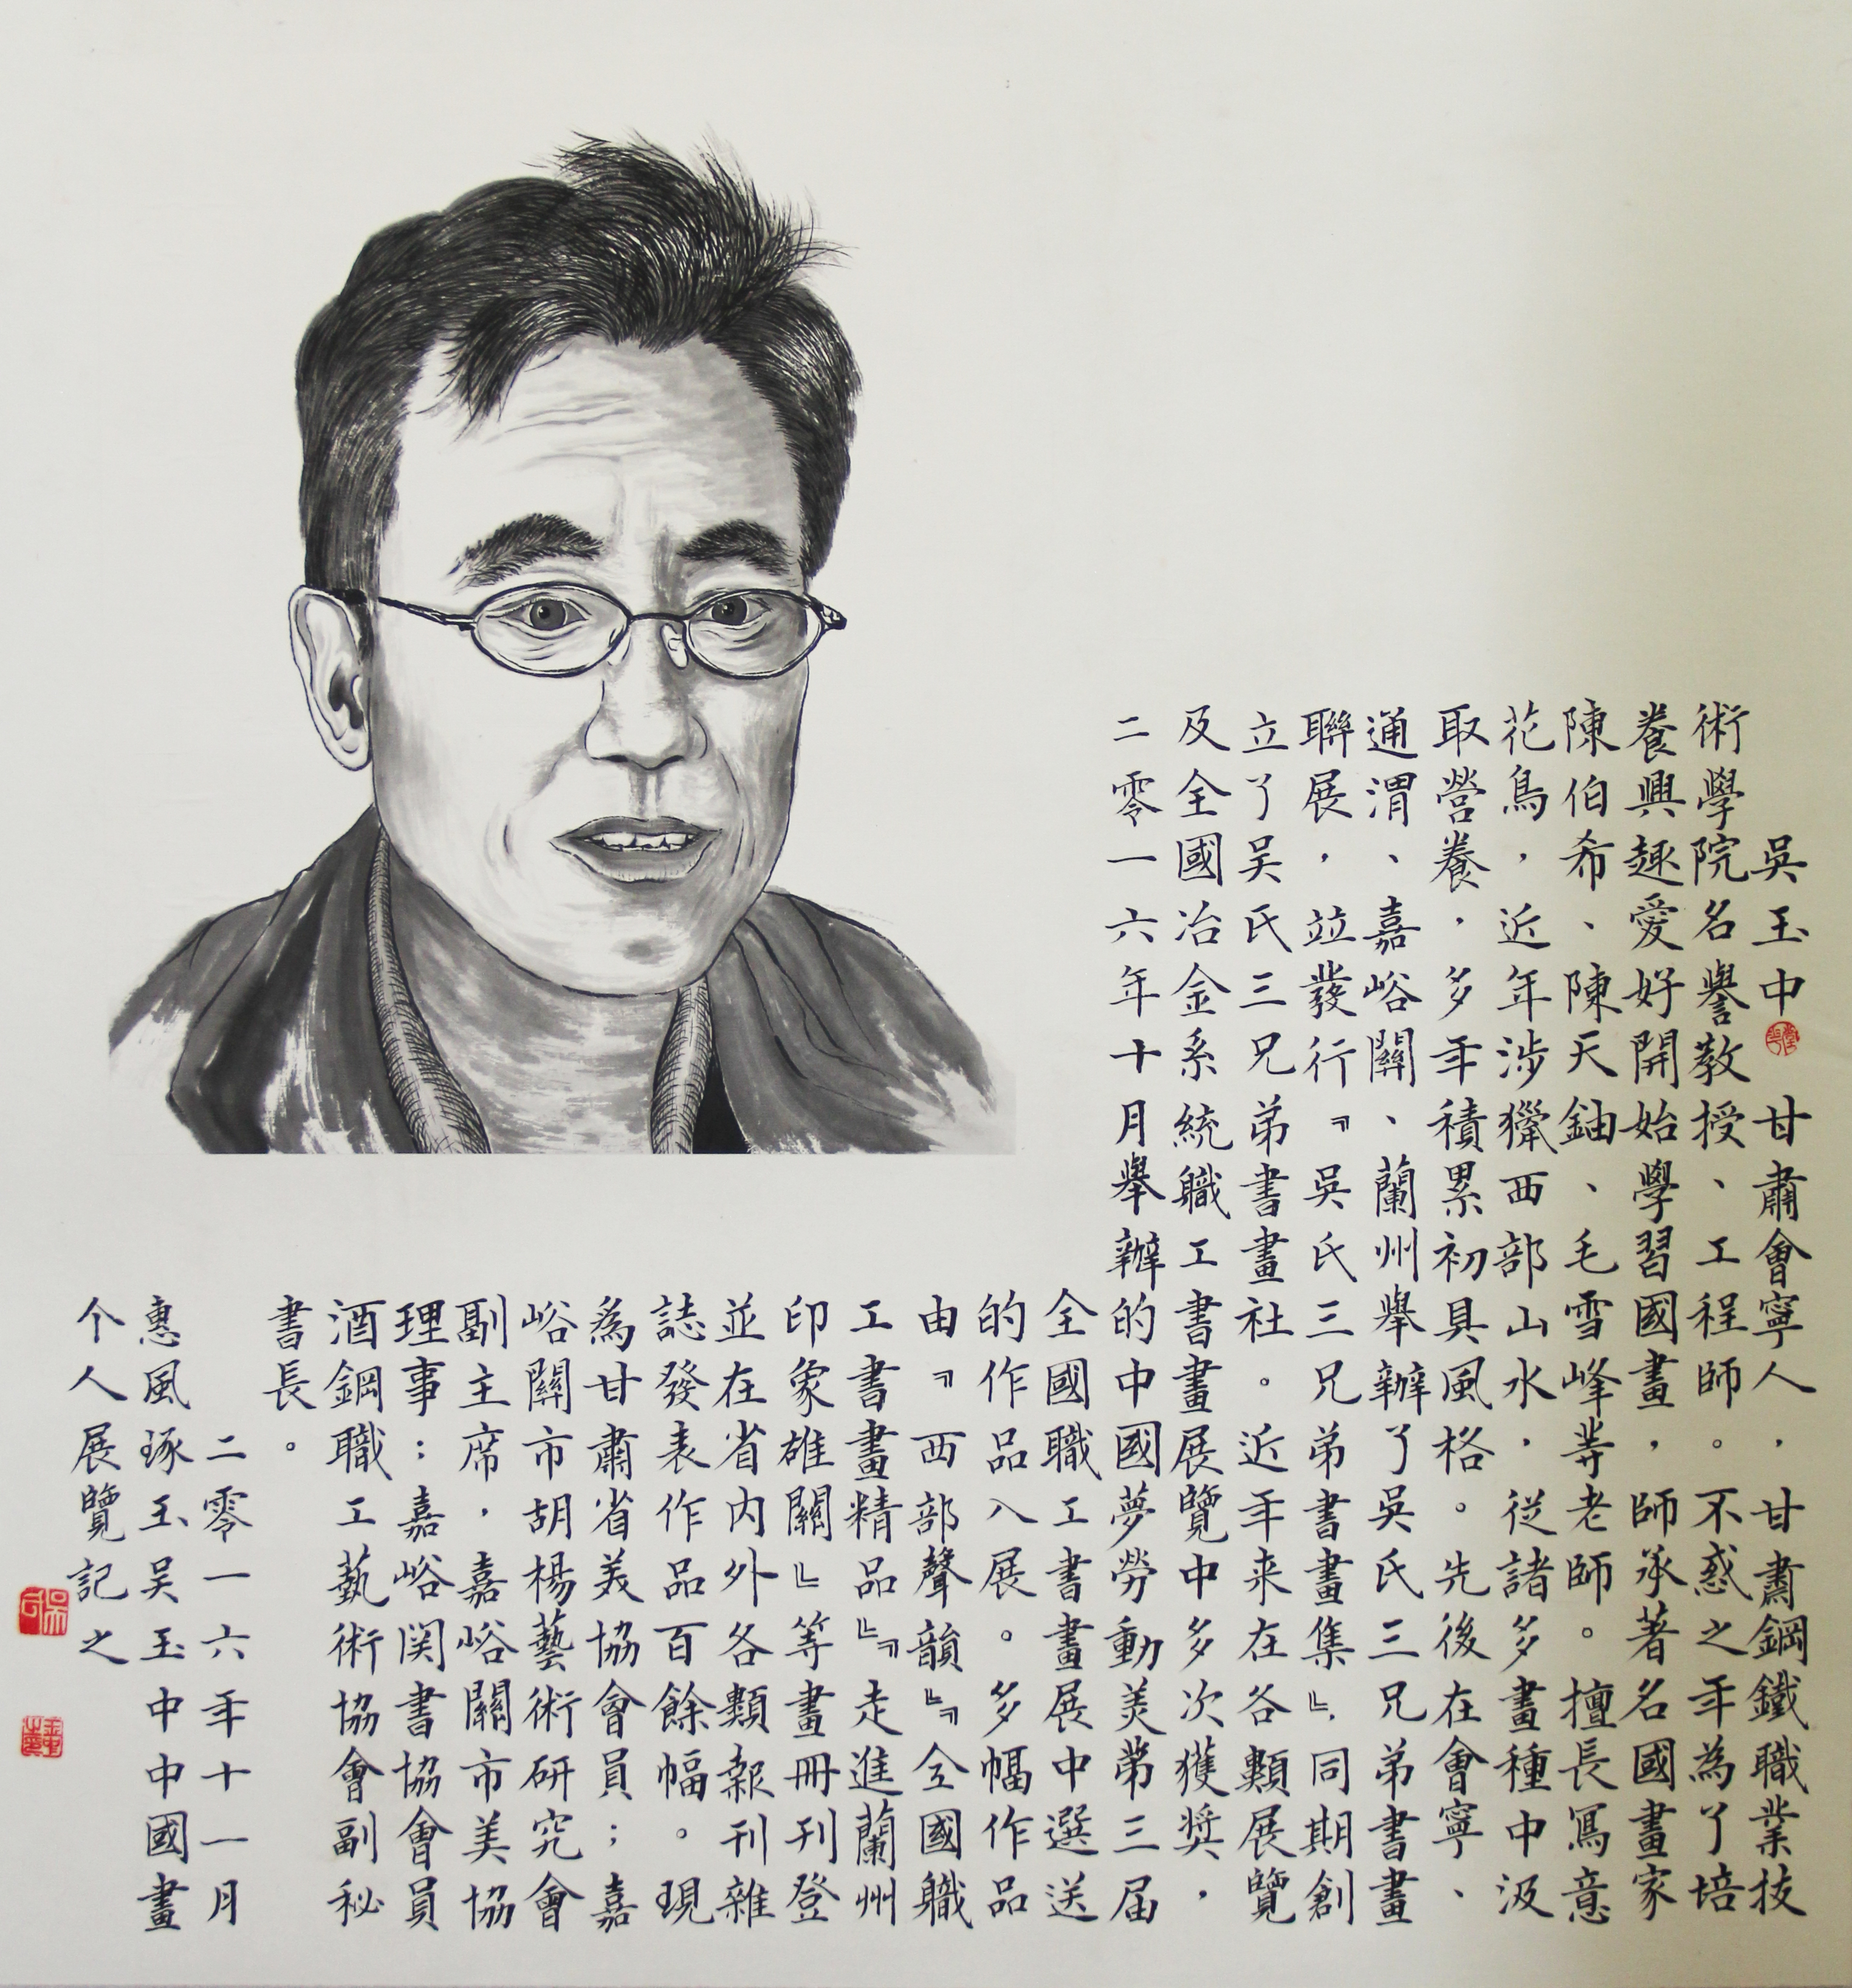 吳玉中 甘肅會寧人，甘肅鋼鐵職業技
術學院名譽教授、工程師。不惑之年為了培
養興趣愛好開始學習國畫，師承著名國畫家
陳伯希、陳天鈾、毛雪峰等老師。擅長寫意
花鳥，近年涉獵西部山水，從諸多畫種中汲
取營養，多年積累初具風格。先後在會寧、
通渭、嘉峪關、蘭州舉辦了吳氏三兄弟書畫
聯展，竝發行『吳氏三兄弟書畫集』，同期創
立了吴氏三兄弟書畫社。近年来在各類展覽
及全國冶金系統職工書畫展覽中多次獲奬，
二零一六年十月舉辦的中國夢勞動美第三届
全國職工書畫展中選送
的作品入展。多幅作品
由『西部聲韻』『全國職
工書畫精品』『走進蘭州
印象雄關』等畫冊刊登
並在省内外各類報刊雜
誌發表作品百餘幅。現
為甘肅省美協會員；嘉
峪關市胡楊藝術研究會
副主席，嘉峪關市美協
理事；嘉峪関書協會員
酒鋼職工藝術協會副秘
書長。
二零一六年十一月
惠風琢玉吴玉中中國畫
个人展覽記之